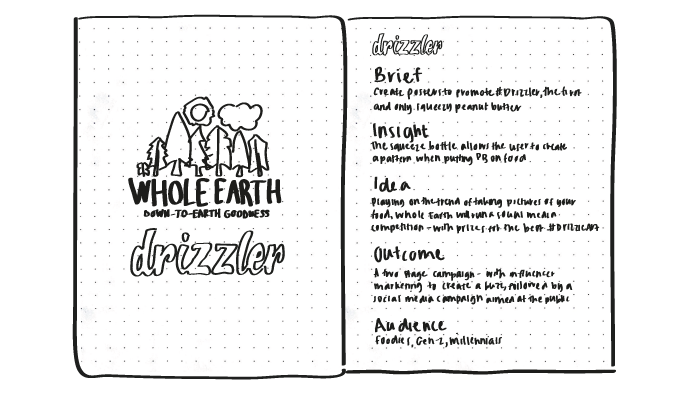 WHOLE EARTH
DOWN-TO-EARTH GOODNESS
drizzler
drizzler
Brief
Create posters to promote #Drizzler, the first
and only squeezy peanut butter
Insight
The squeeze bottle allows the user to create
a pattern when putting PB on food.
Idea
Playing on the trend of taking pictures of your
food, Whole Earth will run a social media
competition - with prizes for the best #DrizzleArt
Outcome
A two stage campaign - with influencer
marketing to create a buzz, followed by a
social media campaign aimed at the public
Audience
Foodies, Gen-Z, Millennials